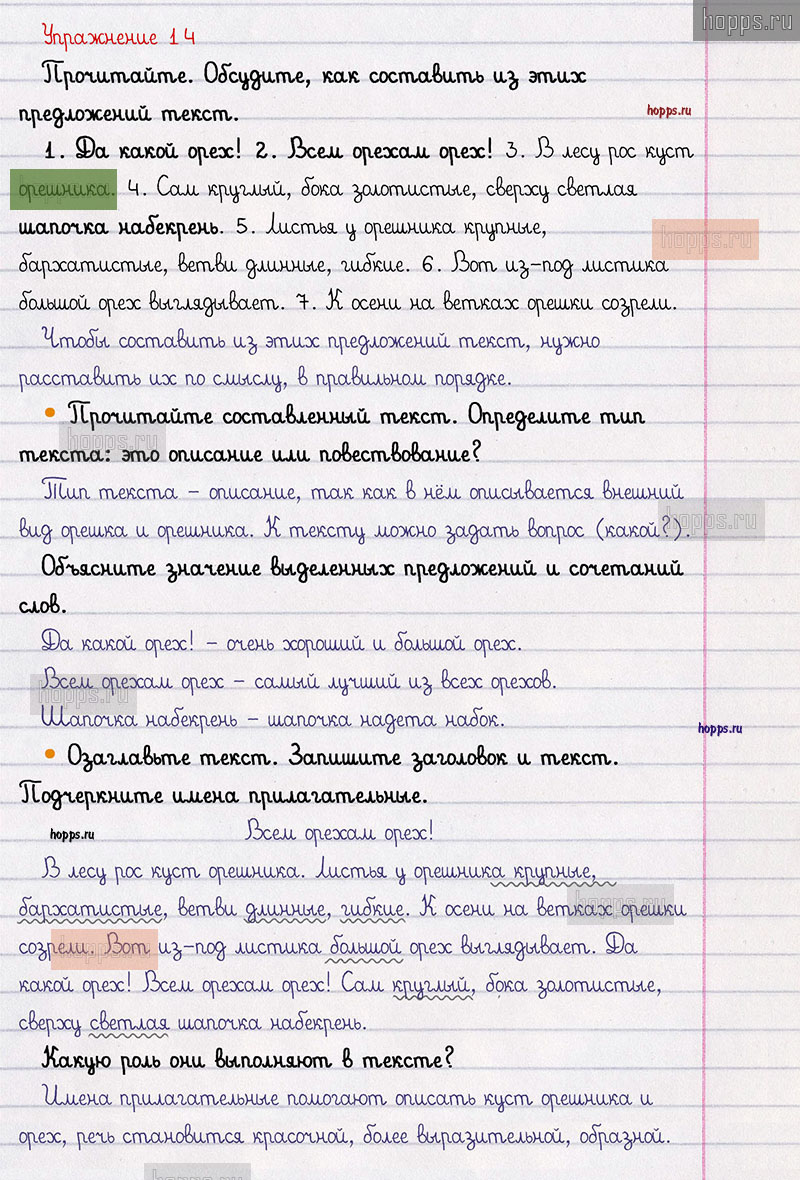 hopps.ru
Упражнение 14
Прочитайте. Обсудите, как составить из этих
предложений текст.
hopps.ru
1. Да какой орех! 2. Всем орехам орех! 3. В лесу рос куст
орешника. 4. Сам круглый, бока золотистые, сверху светлая
шапочка набекрень. 5. Листья у орешника крупные,
hopps.ru
бархатистые, ветви длинные, гибкие. 6. Вот из-под листика
большой орех выглядывает. 7. К осени на ветках орешки созрели.
Чтобы составить из этих предложений текст, нужно
расставить их по смыслу, в правильном порядке.
• Прочитайте составленный текст. Определите тип
hopps.ru
текста: это описание или повествование?
Тип текста – описание, так как в нём описывается внешний
вид орешка и орешника. К тексту можно задать вопрос (какой?).
hopps.ru
Объясните значение выделенных предложений и сочетаний
слов.
Да какой орех! – очень хороший и большой орех.
Всем орехам орех – самый лучший из всех орехов.
hopps.ru
Шапочка набекрень – шапочка надета набок.
hopps.ru
• Озаглавьте текст. Запишите заголовок и текст.
Подчеркните имена прилагательные.
hopps.ru
Всем орехам орех!
В лесу рос куст орешника. Листья у орешника крупные,
бархатистые, ветви длинные, гибкие. К осени на ветках орешки
hopps.ru
созрели. Вот из-под листика большой орех выглядывает. Да
какой орех! Всем орехам орех! Сам круглый, бока золотистые,
сверху светлая шапочка набекрень.
Какую роль они выполняют в тексте?
Имена прилагательные помогают описать куст орешника и
орех, речь становится красочной, более выразительной, образной.
hopps.ru